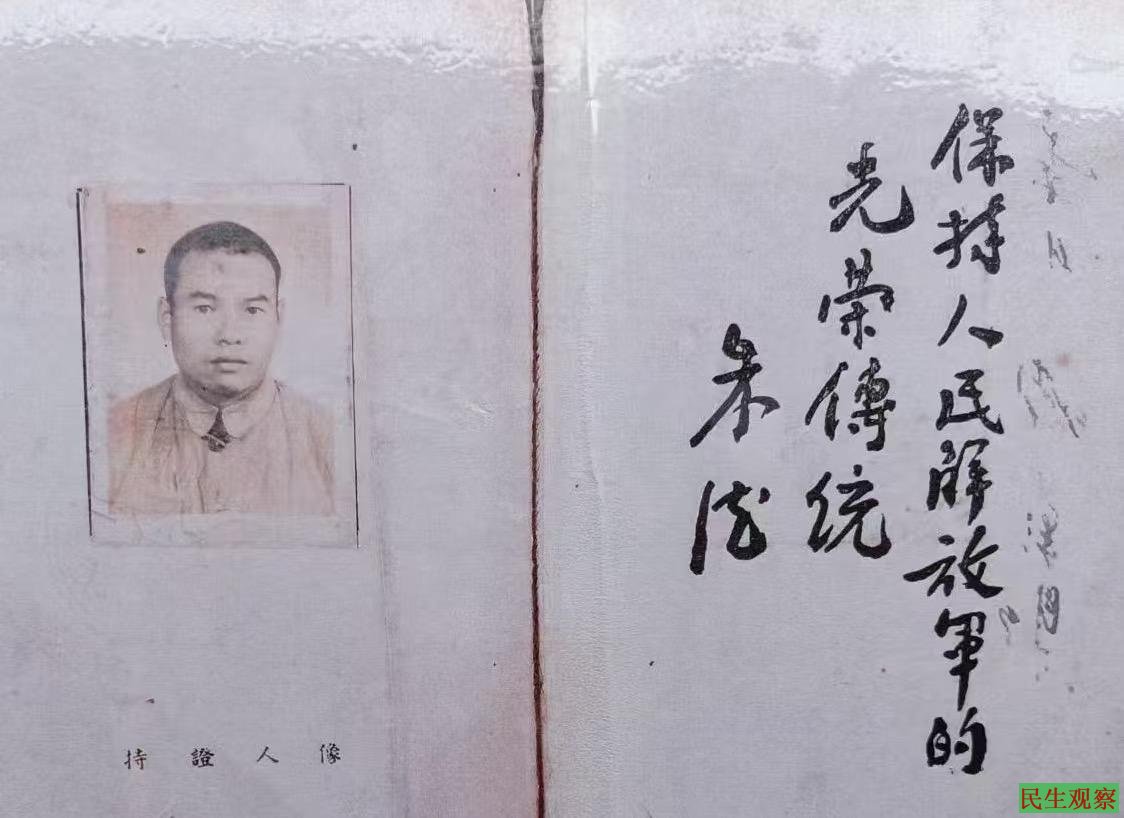 持證人像
保持人民解放軍的
光榮傳統
朱德
民生观察